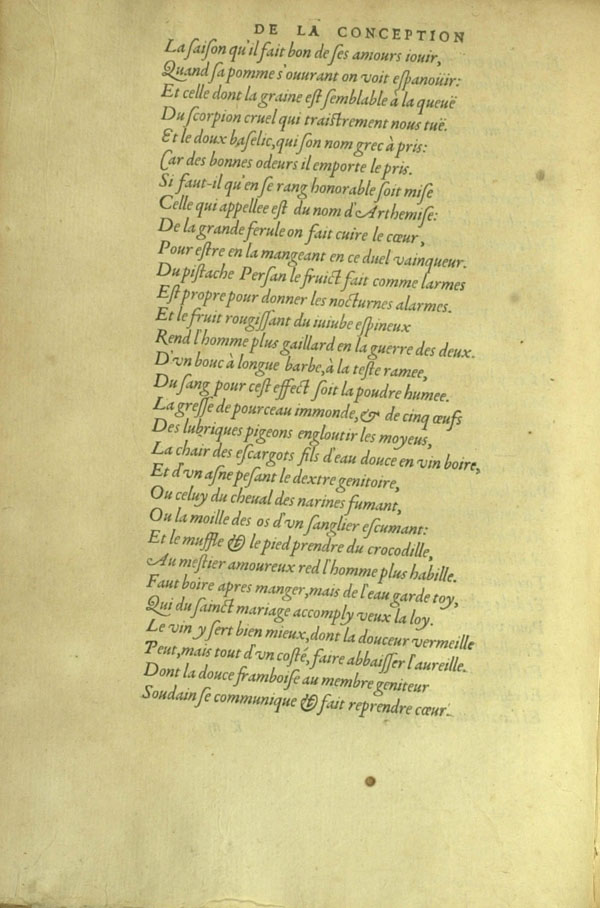 DE LA CONCEPTION
La ſaiſon qu'il fait bon de ſes amours iouir,
Quand ſa pomme s'ouurant on voit eſpanoüir:
Et celle dont la graine eſt ſemblable à la queuë
Du ſcorpion cruel qui traiſtrement nous tuë.
Et le doux baſelic, qui ſon nom grec à pris:
Car des bonnes odeurs il emporte le pris.
Si faut-il qu'en ſe rang honorable ſoit miſe
Celle qui appellee eſt du nom d'Arthemiſe:
De la grande ferule on fait cuire le cœur,
Pour eſtre en la mangeant en ce duel vainqueur.
Du piſtache Perſan le fruict fait comme larmes
Eſt propre pour donner les nocturnes alarmes.
Et le fruit rougiſſant du iuiube eſpineux
Rend l'homme plus gaillard en la guerre des deux.
D'vn bouc à longue barbe, à la teſte ramee,
Du ſang pour ceſt effect ſoit la poudre humee.
La greſſe de pourceau immonde, & de cinq œufs
Des lubriques pigeons engloutir les moyeus,
La chair des eſcargots fils d'eau douce en vin boire,
Et d'vn aſne peſant le dextre genitoire,
Ou celuy du cheual des narines fumant,
Ou la moille des os d'vn ſanglier eſcumant:
Et le muffle & le pied prendre du crocodille,
Au meſtier amoureux red l'homme plus habille.
Faut boire apres manger, mais de l'eau garde toy,
Qui du ſainct mariage accomply veux la loy.
Le vin y ſert bien mieux, dont la douceur vermeille
Peut, mais tout d'vn coſté, faire abbaiſſer l'aureille.
Dont la douce framboiſe au membre geniteur
Soudain ſe communique & fait reprendre cœur.